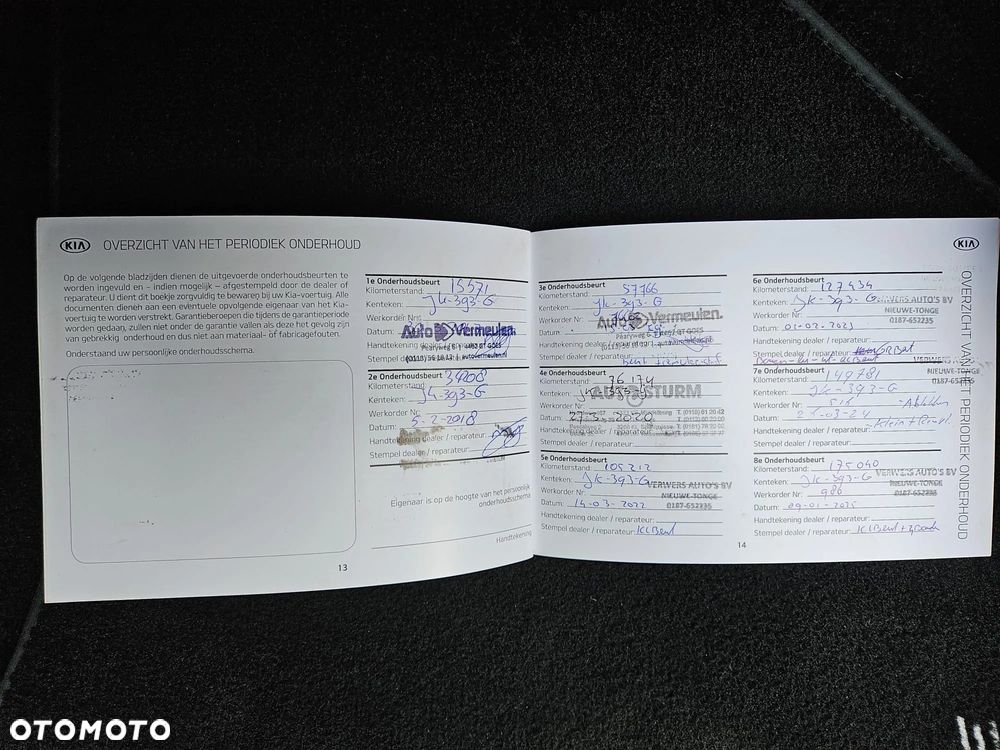 KIA OVERZICHT VAN HET PERIODIEK ONDERHOUD
Op de volgende bladzijden dienen de uitgevoerde onderhoudsbeurten te
worden ingevuld en – indien mogelijk – afgestempeld door de dealer of
reparateur. U dient dit boekje zorgvuldig te bewaren bij uw Kia-voertuig. Alle
documenten dienen aan een eventuele opvolgende eigenaar van het Kia-
voertuig te worden verstrekt. Garantieberoepen die tijdens de garantieperiode
worden gedaan, zullen niet onder de garantie vallen als deze het gevolg zijn
van gebrekkig onderhoud en dus niet aan materiaal- of fabricagefouten.
Onderstaand uw persoonlijke onderhoudsschema.
1e Onderhoudsbeurt
Kilometerstand: 15571
Kenteken: JK-393-G
Werkorder Nr:
Datum:
Auto Vermeulen
Handtekening dealer / reparateur:
Pearyweg 6
4462 GT GOES
Stempel dealer
(0113) 56 18 13 | autovermeulen.nl
2e Onderhoudsbeurt
Kilometerstand:
Kenteken: JK-393-G
Werkorder Nr:
Datum: 5-2-2018
Handtekening dealer / reparateur:
Stempel dealer / reparateur:
Eigenaar is op de hoogte van het persoonlijk
onderhoudsschema
Handtekening
13
3e Onderhoudsbeurt
Kilometerstand: 57766
Kenteken: JK-393-G
Werkorder Nr:
Datum:
Auto Vermeulen
Handtekening dealer
Pearyweg
4462 GT GOES
Stempel dealer
4e Onderhoudsbeurt
Kilometerstand: 76174
Kenteken:
AUTOSTURM
Werkorder
Datum: 2020
Handtekening dealer / reparateur:
Stempel dealer / reparateur:
5e Onderhoudsbeurt
Kilometerstand: 105212
Kenteken: JK-393-G
VERWERS AUTO'S BV
Werkorder Nr:
NIEUWE-TONGE
Datum: 14-03-2022
0187-652235
Handtekening dealer / reparateur:
Stempel dealer / reparateur: KlBeurt
14
6e Onderhoudsbeurt
Kilometerstand: 127434
Kenteken: JK-393-G
VERWERS AUTO'S BV
Werkorder Nr:
NIEUWE-TONGE
0187-652235
Datum: 01-02-2023
Handtekening dealer / reparateur:
Stempel dealer / reparateur: GRBeurt
VERWERS AUTO'S BV
7e Onderhoudsbeurt
NIEUWE-TONGE
Kilometerstand: 149781
0187-652235
Kenteken: JK-393-G
Werkorder Nr: 518
Datum: 03-24
Handtekening dealer / reparateur:
Stempel dealer / reparateur:
8e Onderhoudsbeurt
Kilometerstand: 175040
VERWERS AUTO'S BV
Kenteken: JK-393-G
NIEUWE-TONGE
Werkorder Nr: 986
0187-652235
Datum: 09-01-2025
Handtekening dealer / reparateur:
Stempel dealer / reparateur: KlBeurt +
KIA
OVERZICHT VAN HET PERIODIEK ONDERHOUD
OTOMOTO